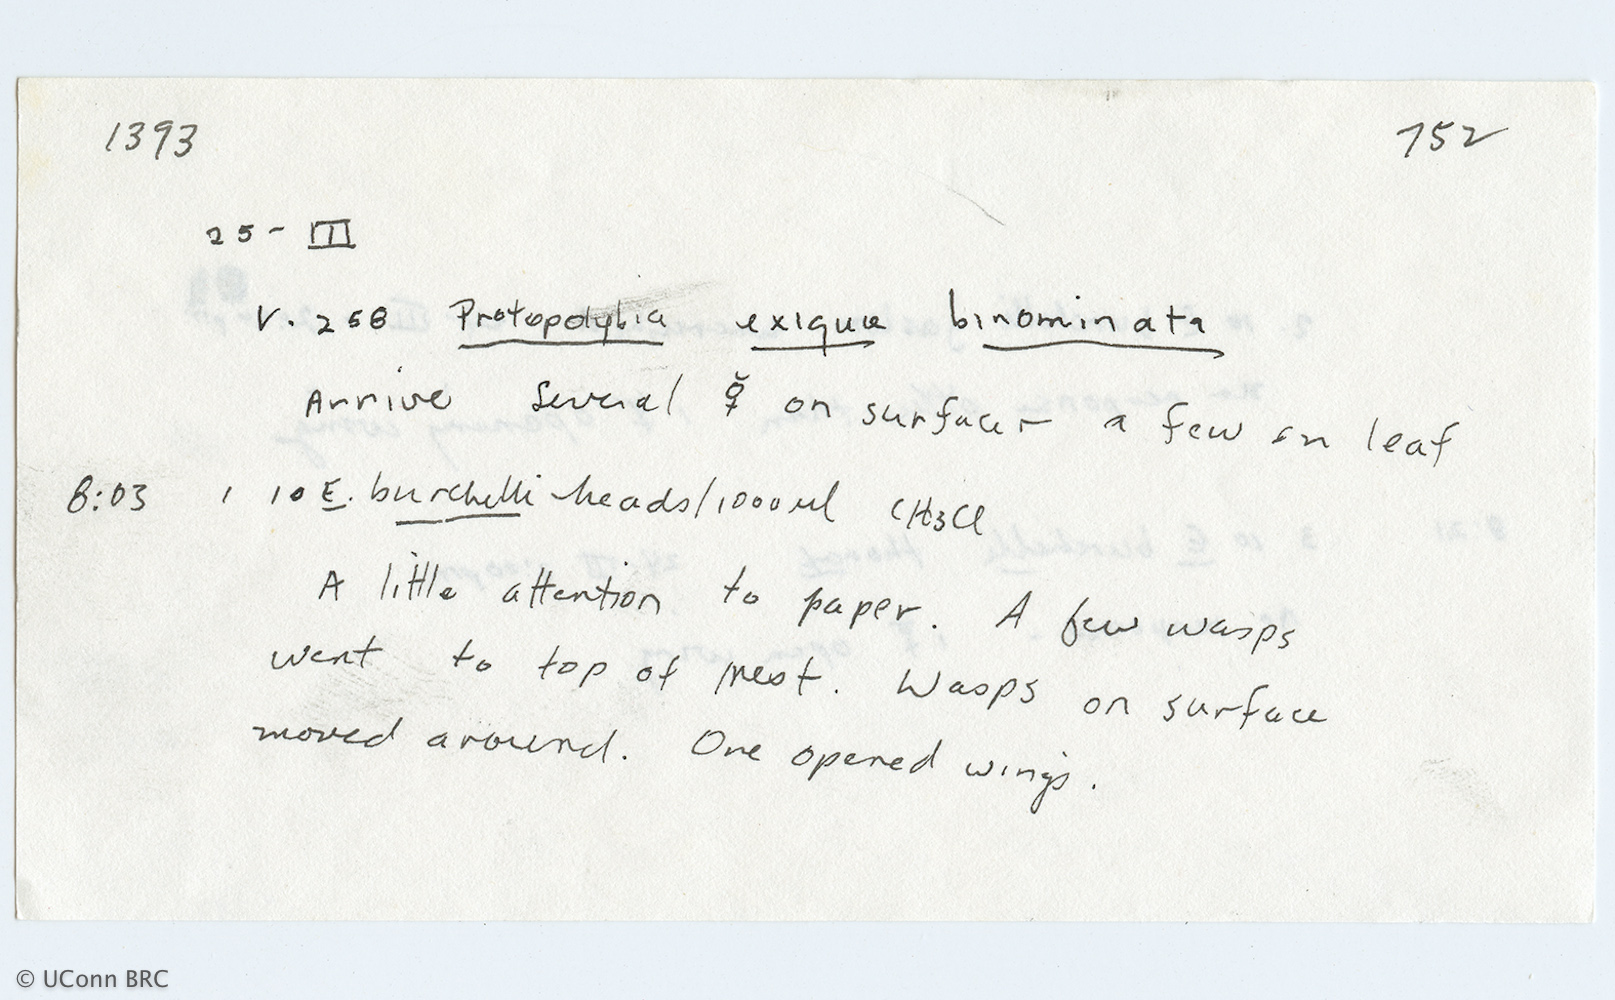 1393 752
25-III
V. 258 Protopolybia exigua binominata
Arrive Several ☿ on surface a few on leaf
8:03 1 10 E. burchelli heads/1000 ul CH3Cl
A little attention to paper. A few wasps
went to top of nest. Wasps on surface
moved around. One opened wings.
© UConn BRC